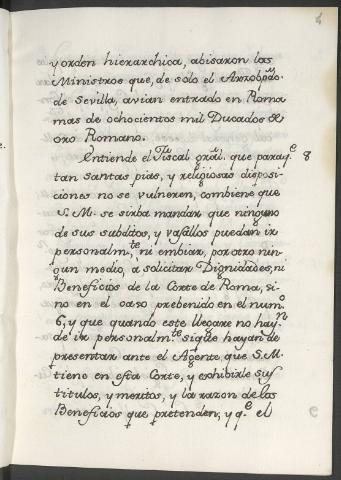 y orden hierarchica, abisaron las
Ministros que, de solo el Arzobp.do
de Sevilla, avian entrado en Roma
mas de ochocientos mil Ducados de
oro Romano.
Entiende el Fiscal gral. que para q.e 8
tan santas pias, y religiosas disposi-
ciones no se vulneren, combiene que
S. M. se sirba mandar que ninguno
de sus subditos, y vasallos puedan ir
personalm.te ni embiar, por otro nin-
gun medio, a solicitar Dignidades, ni
Beneficios de la Corte de Roma, si-
no en el caso prebenido en el num.o
6, y que quando este llegare no hayn
de ir personalm.te sigue hayan de
presentar ante el Agente, que S. M.
tiene en esta Corte, y exhibirle sus
titulos, y meritos, y la razon de los
Beneficios que pretenden, y q.e el